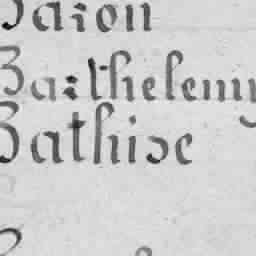 Baron
Barthelemy
Bathise